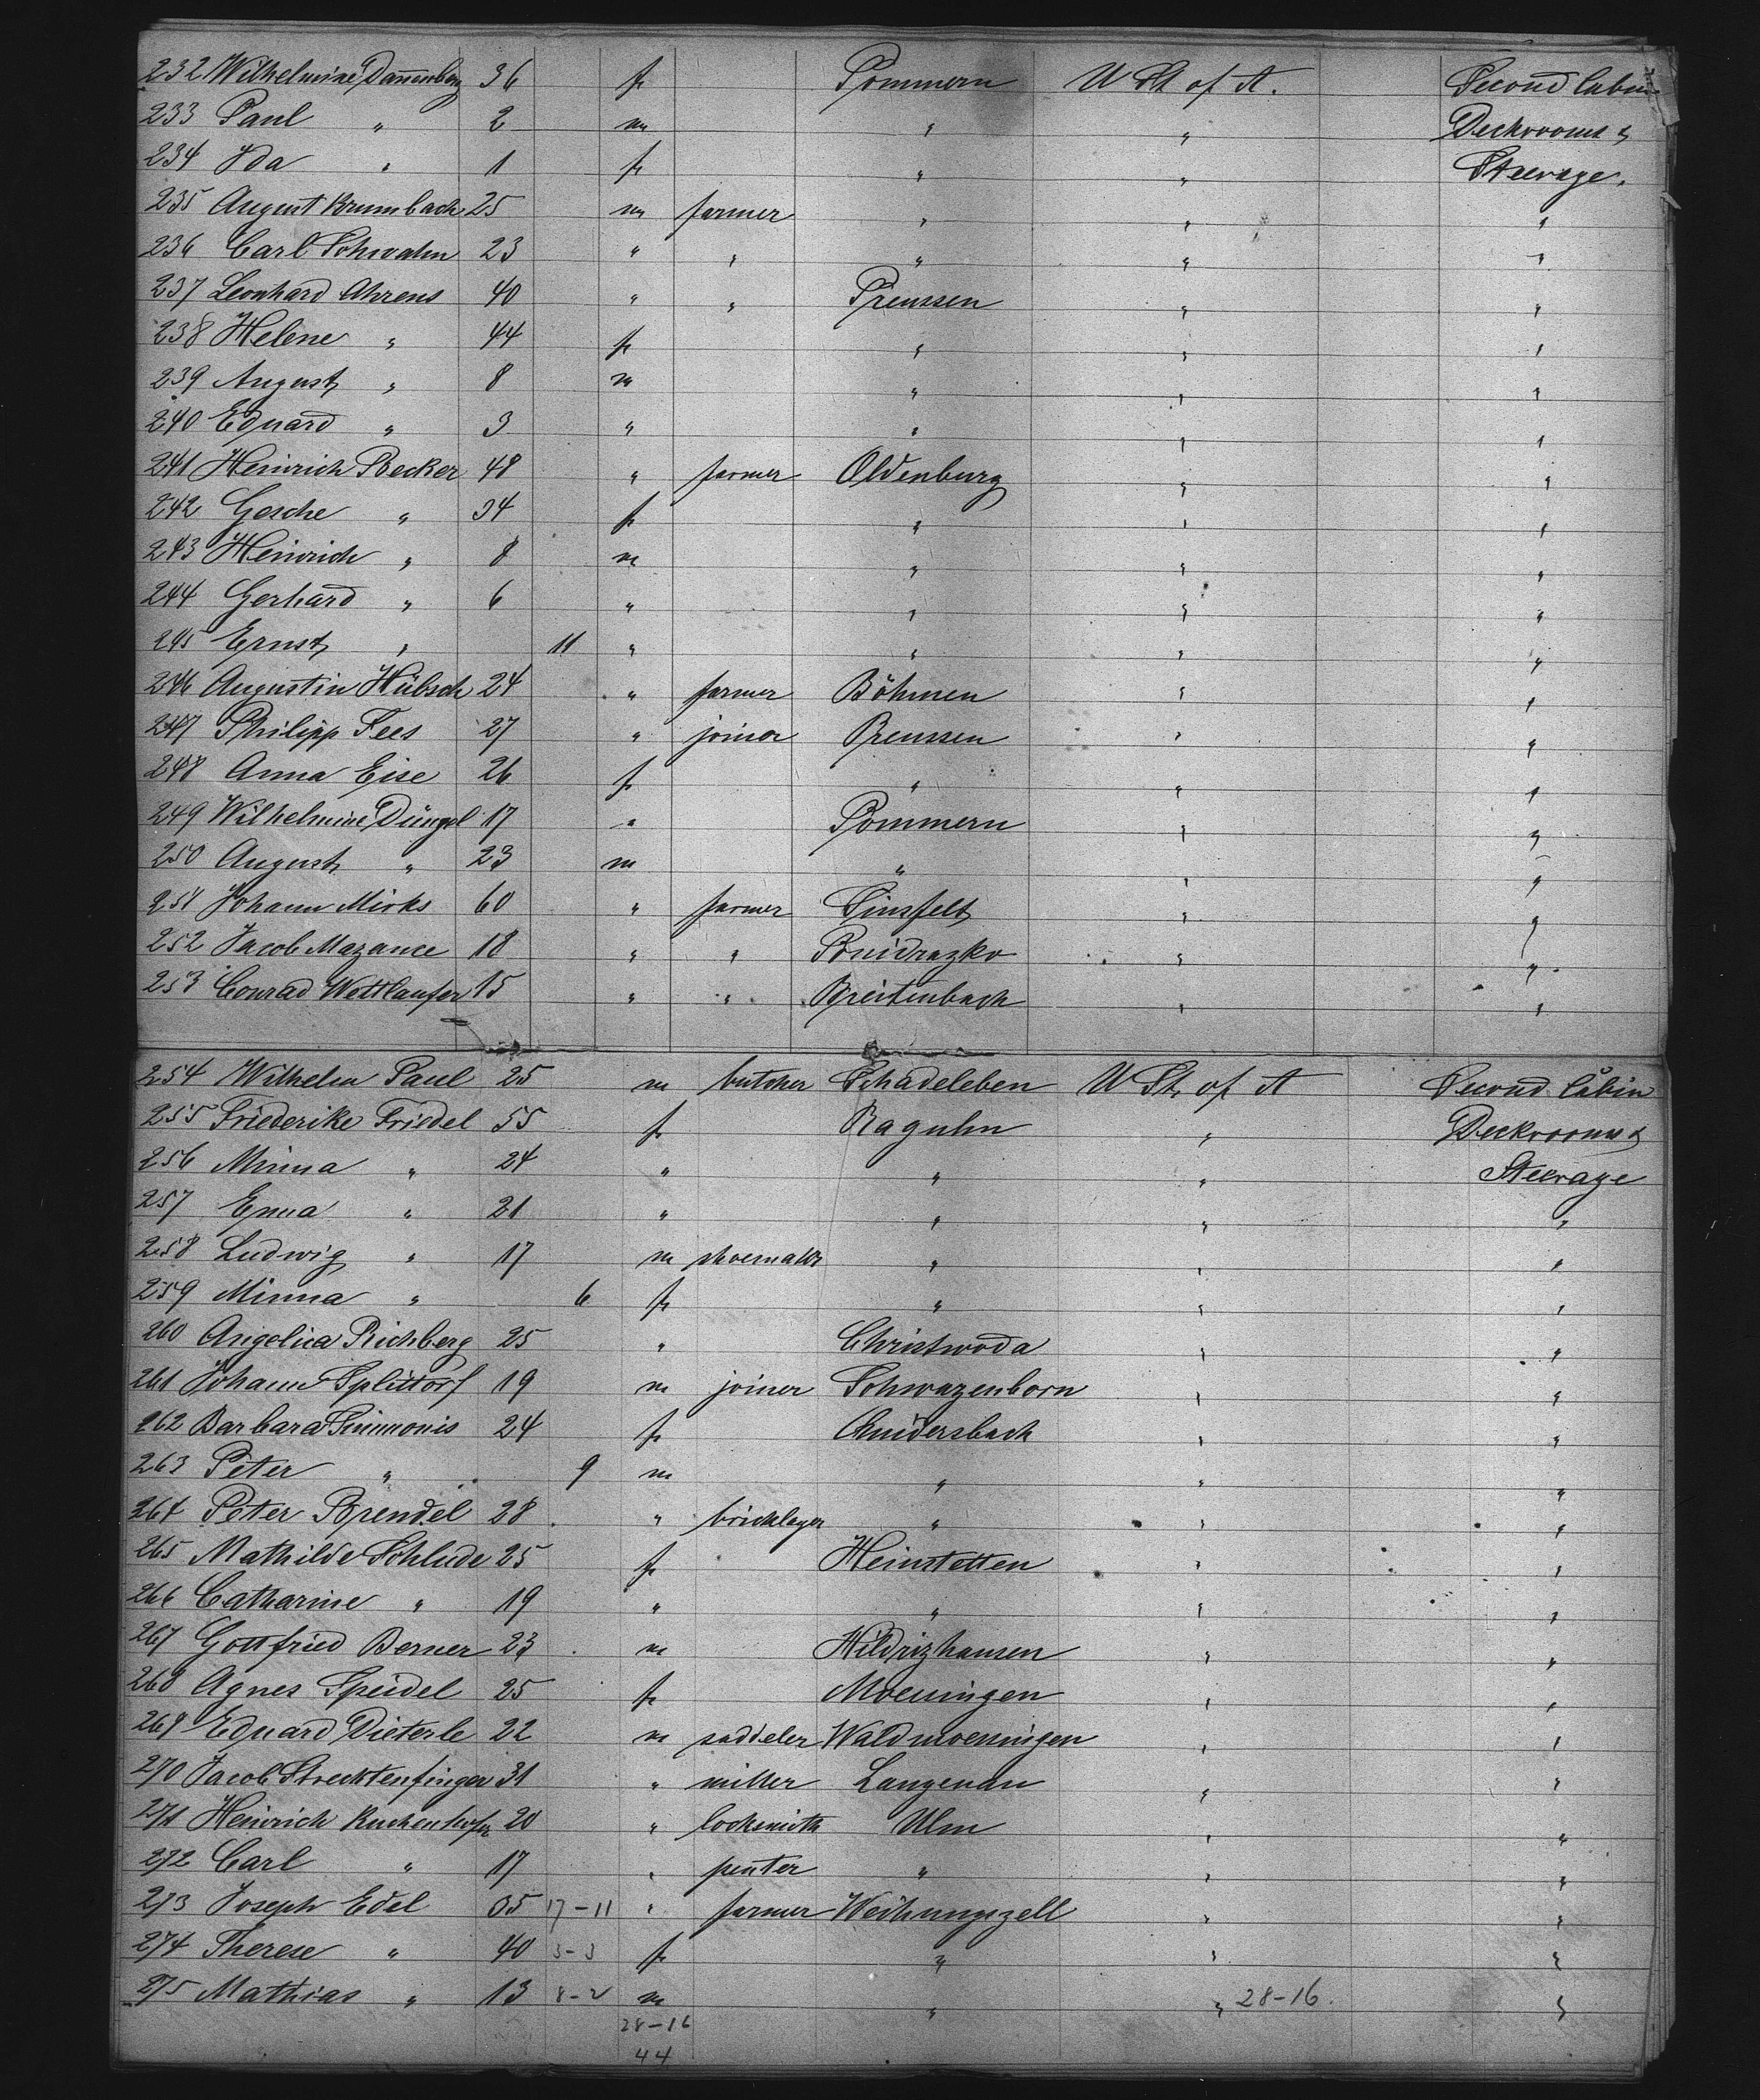 232 Wilhelmine Dannenberg 36 f Pommern U St of A. Second Cabin
233 Paul " 2 m " " Deckrooms &
234 Ida " 1 f " " Steerage.
235 August Krumbach 25 m farmer " " "
236 Carl Schwahn 23 " " " " "
237 Leonhard Ahrens 40 " " Preussen " "
238 Helene " 44 f " " "
239 August " 8 m " " "
240 Eduard " 3 " " " "
241 Heinrich Becker 48 " farmer Oldenburg " "
242 Gesche " 34 f " " "
243 Heinrich " 8 m " " "
244 Gerhard " 6 " " " "
245 Ernst " 11 " " " "
246 Augustin Hübsch 24 " farmer Böhmen " "
247 Philipp Fees 27 " joiner Preussen " "
248 Anna Eise 26 f " " "
249 Wilhelmine Düngel 17 " Pommern " "
250 August " 23 m " " "
251 Johann Mirks 60 " farmer Sinsfelt " "
252 Jacob Mazance 18 " " Ponidrazko " "
253 Conrad Wettlaufer 15 " " Breitenbach " "
254 Wilhelm Paul 25 m butcher Schadeleben U St. of A Second Cabin
255 Friederike Friedel 55 f Raguhn " Deckrooms &
256 Minna " 24 " " " Steerage
257 Emma " 21 " " " "
258 Ludwig " 17 m shoemaker " " "
259 Minna " 6 f " " "
260 Angelica Richberg 25 " Christwoda " "
261 Johann Splittorf 19 m joiner Schwazenborn " "
262 Barbara Simmonis 24 f Quidersbach " "
263 Peter " 9 m " " "
264 Peter Brendel 28 " bricklayer " " "
265 Mathilde Schlude 25 f Heinstetten " "
266 Catharine " 19 " " " "
267 Gottfried Berner 23 m Hildrizhausen " "
268 Agnes Speidel 25 f Moessingen " "
269 Eduard Dieterle 22 m saddeler Waldmoessingen " "
270 Jacob Strecktenfinger 31 " miller Langenau " "
271 Heinrich 20 " locksmith Ulm " "
272 Carl " 17 " penter " " "
273 Joseph Edel 35 17-11 " farmer Weihungszell " "
274 Therese " 40 3-3 f " " "
275 Mathias " 13 8-2 m " " 28-16. "
28-16
44